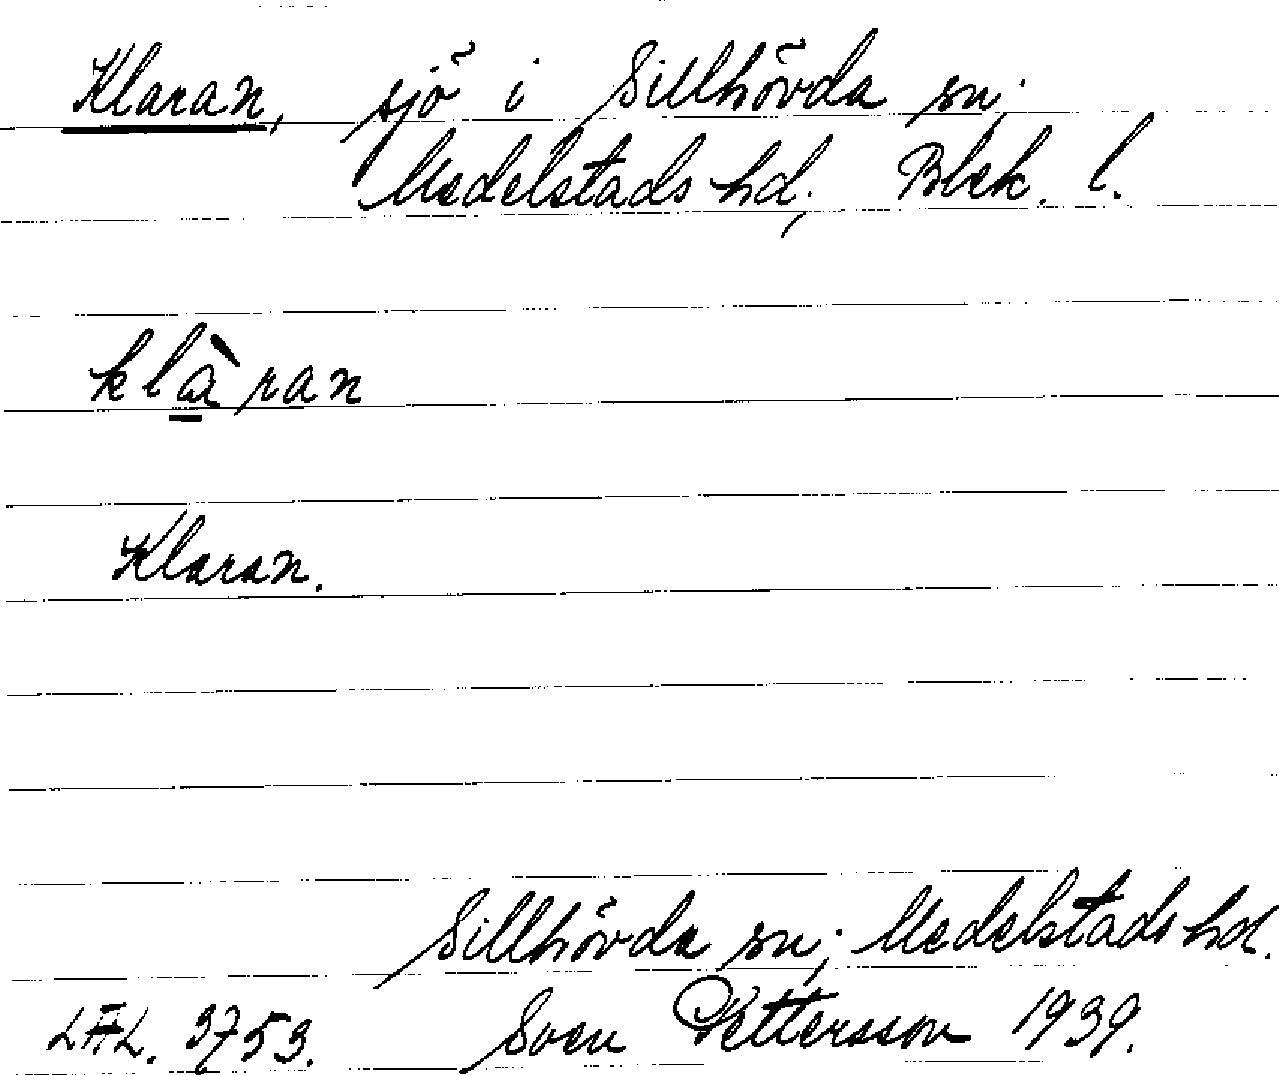 Klaran, sjö i Sillhövda sn.
Medelstads hd. Blek. l.
klàran
Klaran.
Sillhövda sn; Medelstads hd.
LAL. 3753. Sven Pettersson 1939.